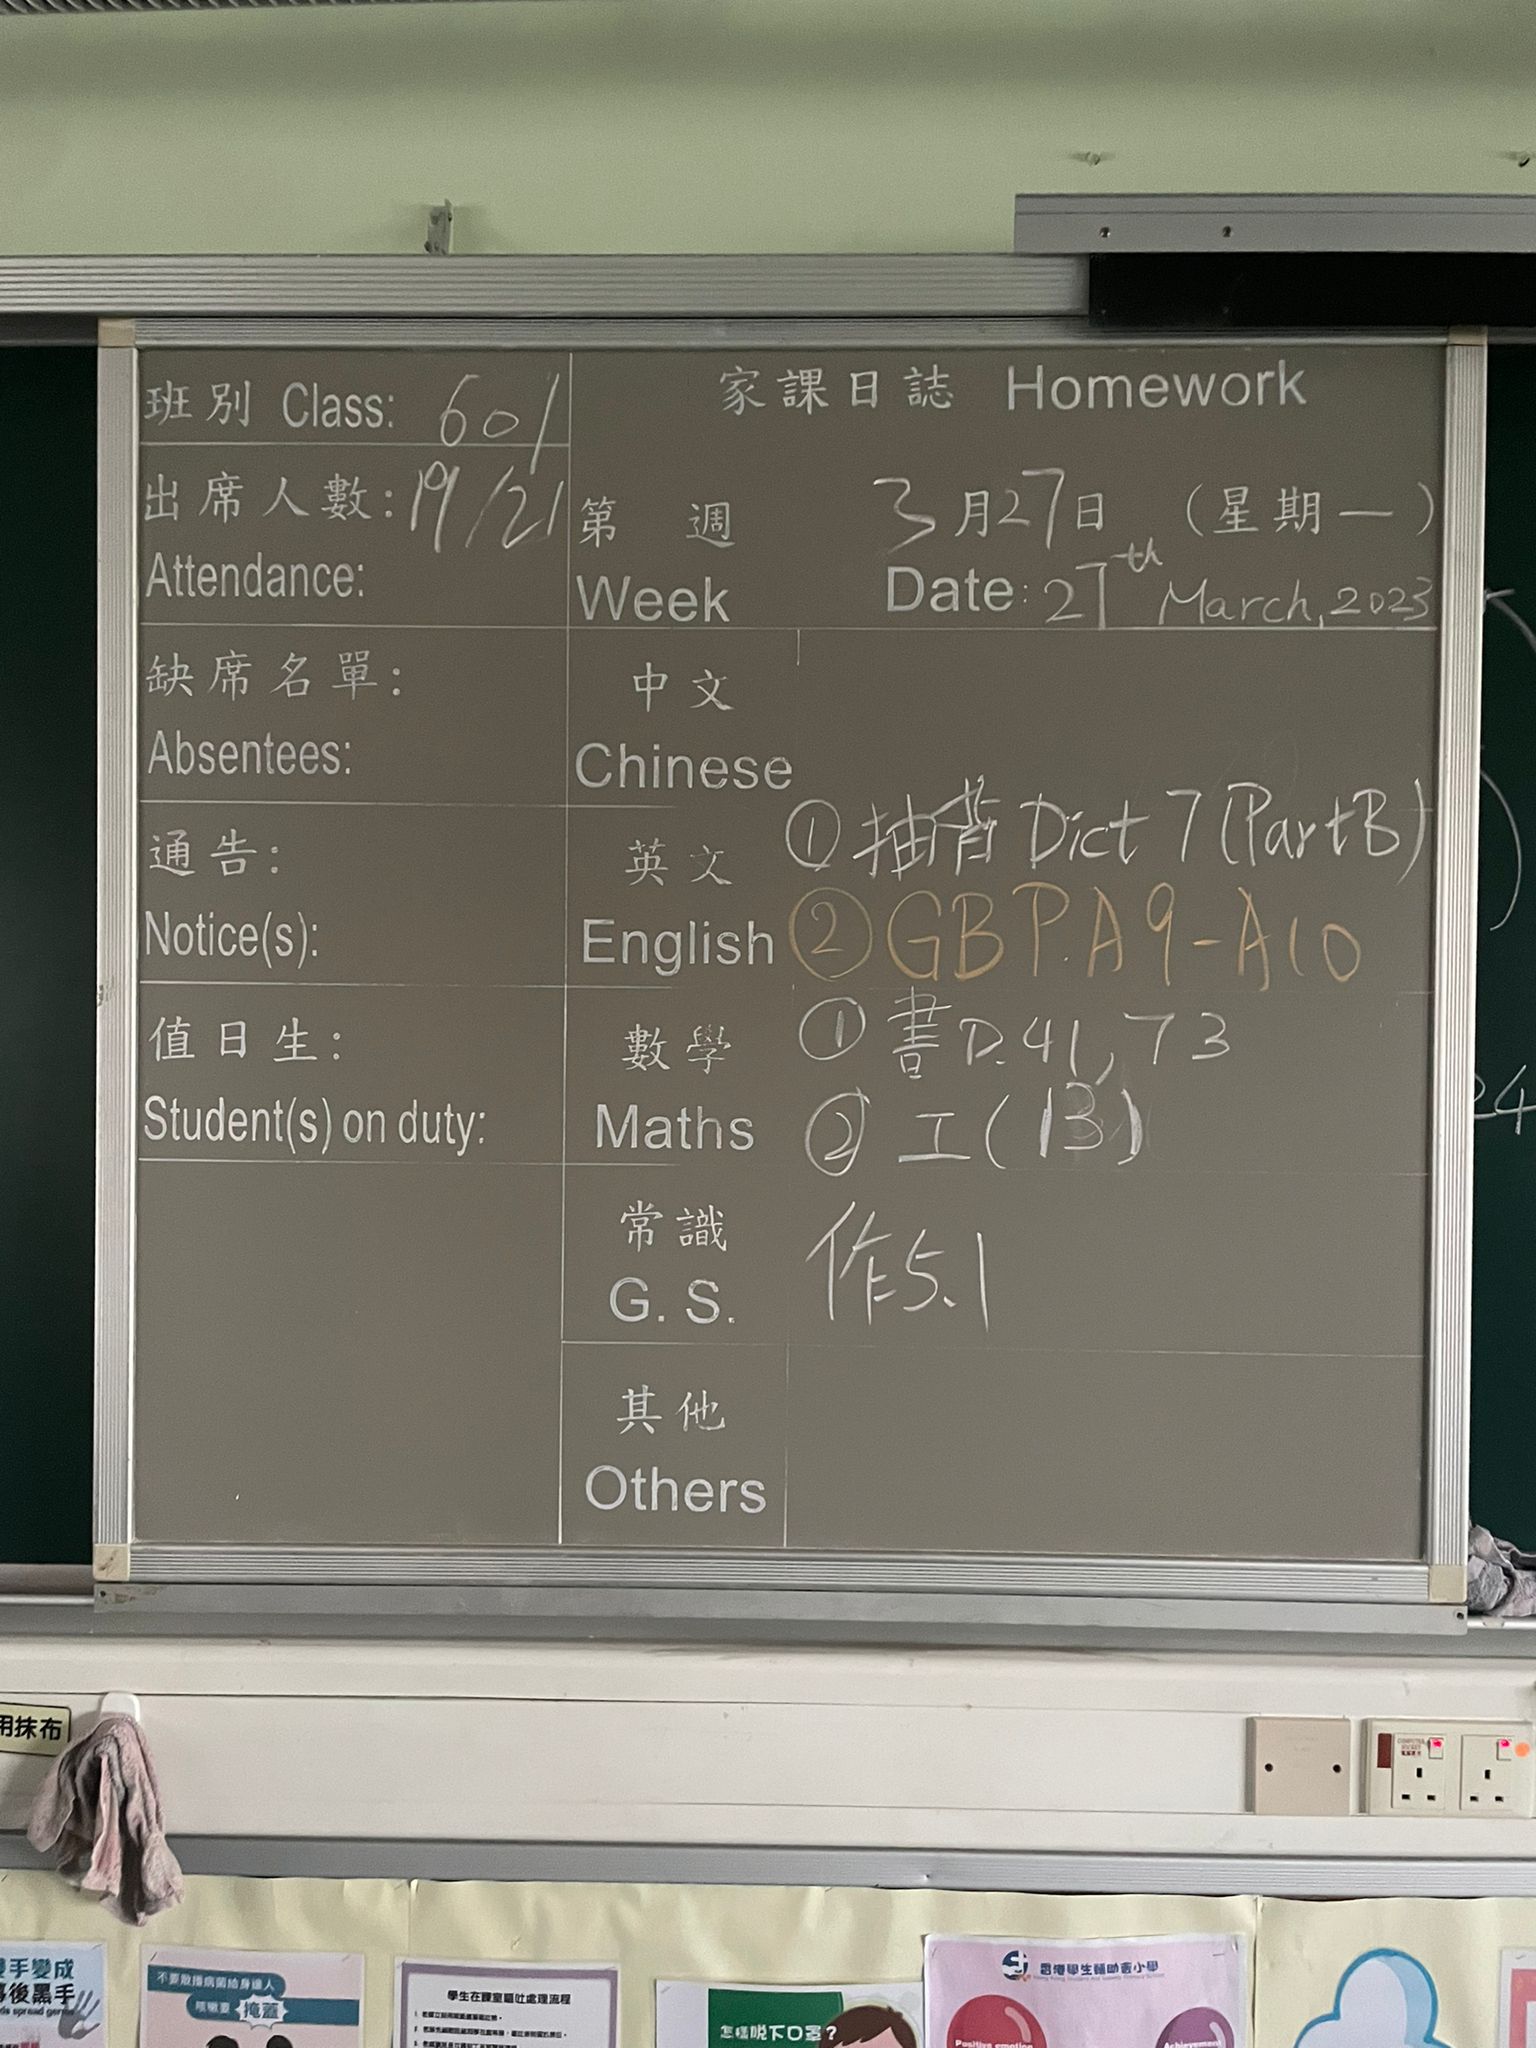 班別 Class: 601
出席人數: 19/21
Attendance:
缺席名單:
Absentees:
通告:
Notice(s):
值日生:
Student(s) on duty:
家課日誌 Homework
第 週 3月27日 (星期一)
Week Date: 27th March, 2023
中文
Chinese
英文 ① 抽背 Dict 7 (Part B)
English ② GB P.A9-A10
數學 ① 書 P.41, 73
Maths ② 工(13)
常識 作5.1
G. S.
其他
Others
24
用抹布
手變成
後黑手
不要散播病菌給身邊人
咳嗽要 掩蓋
學生在課室嘔吐處理流程
怎樣脫下口罩?
香港學生輔助會小學
Positive emotion
Achievement